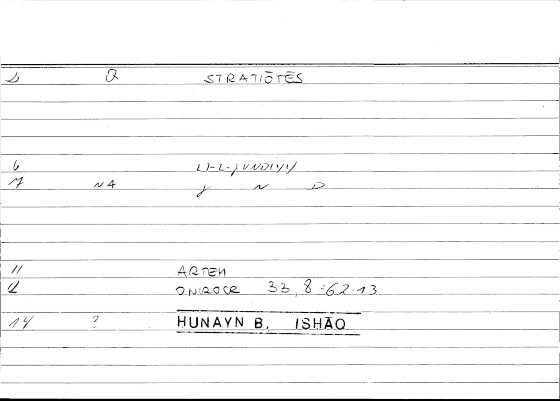 2 Q STRATIŌTĒS
6 LI-L-JUNDIYYI
7 NA J N D
11 ARTEM
12 ONIROCR 33, 8 = 62.13
14 ? HUNAYN B. ISHĀQ